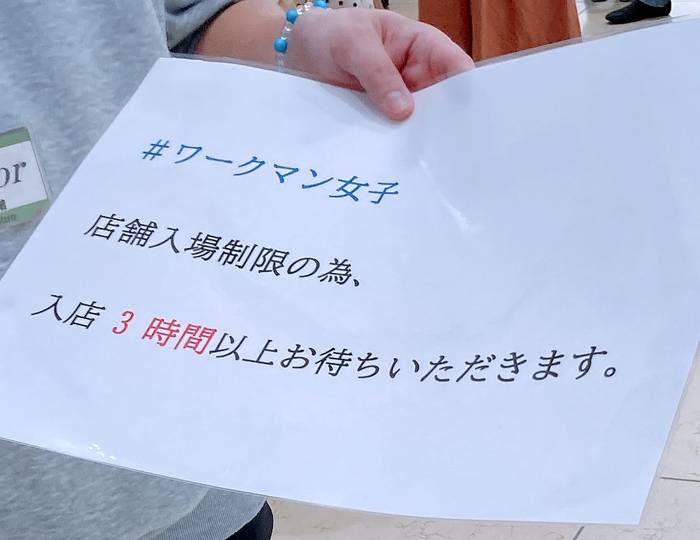 #ワークマン女子
店舗入場制限の為、
入店 3 時間以上お待ちいただきます。
or